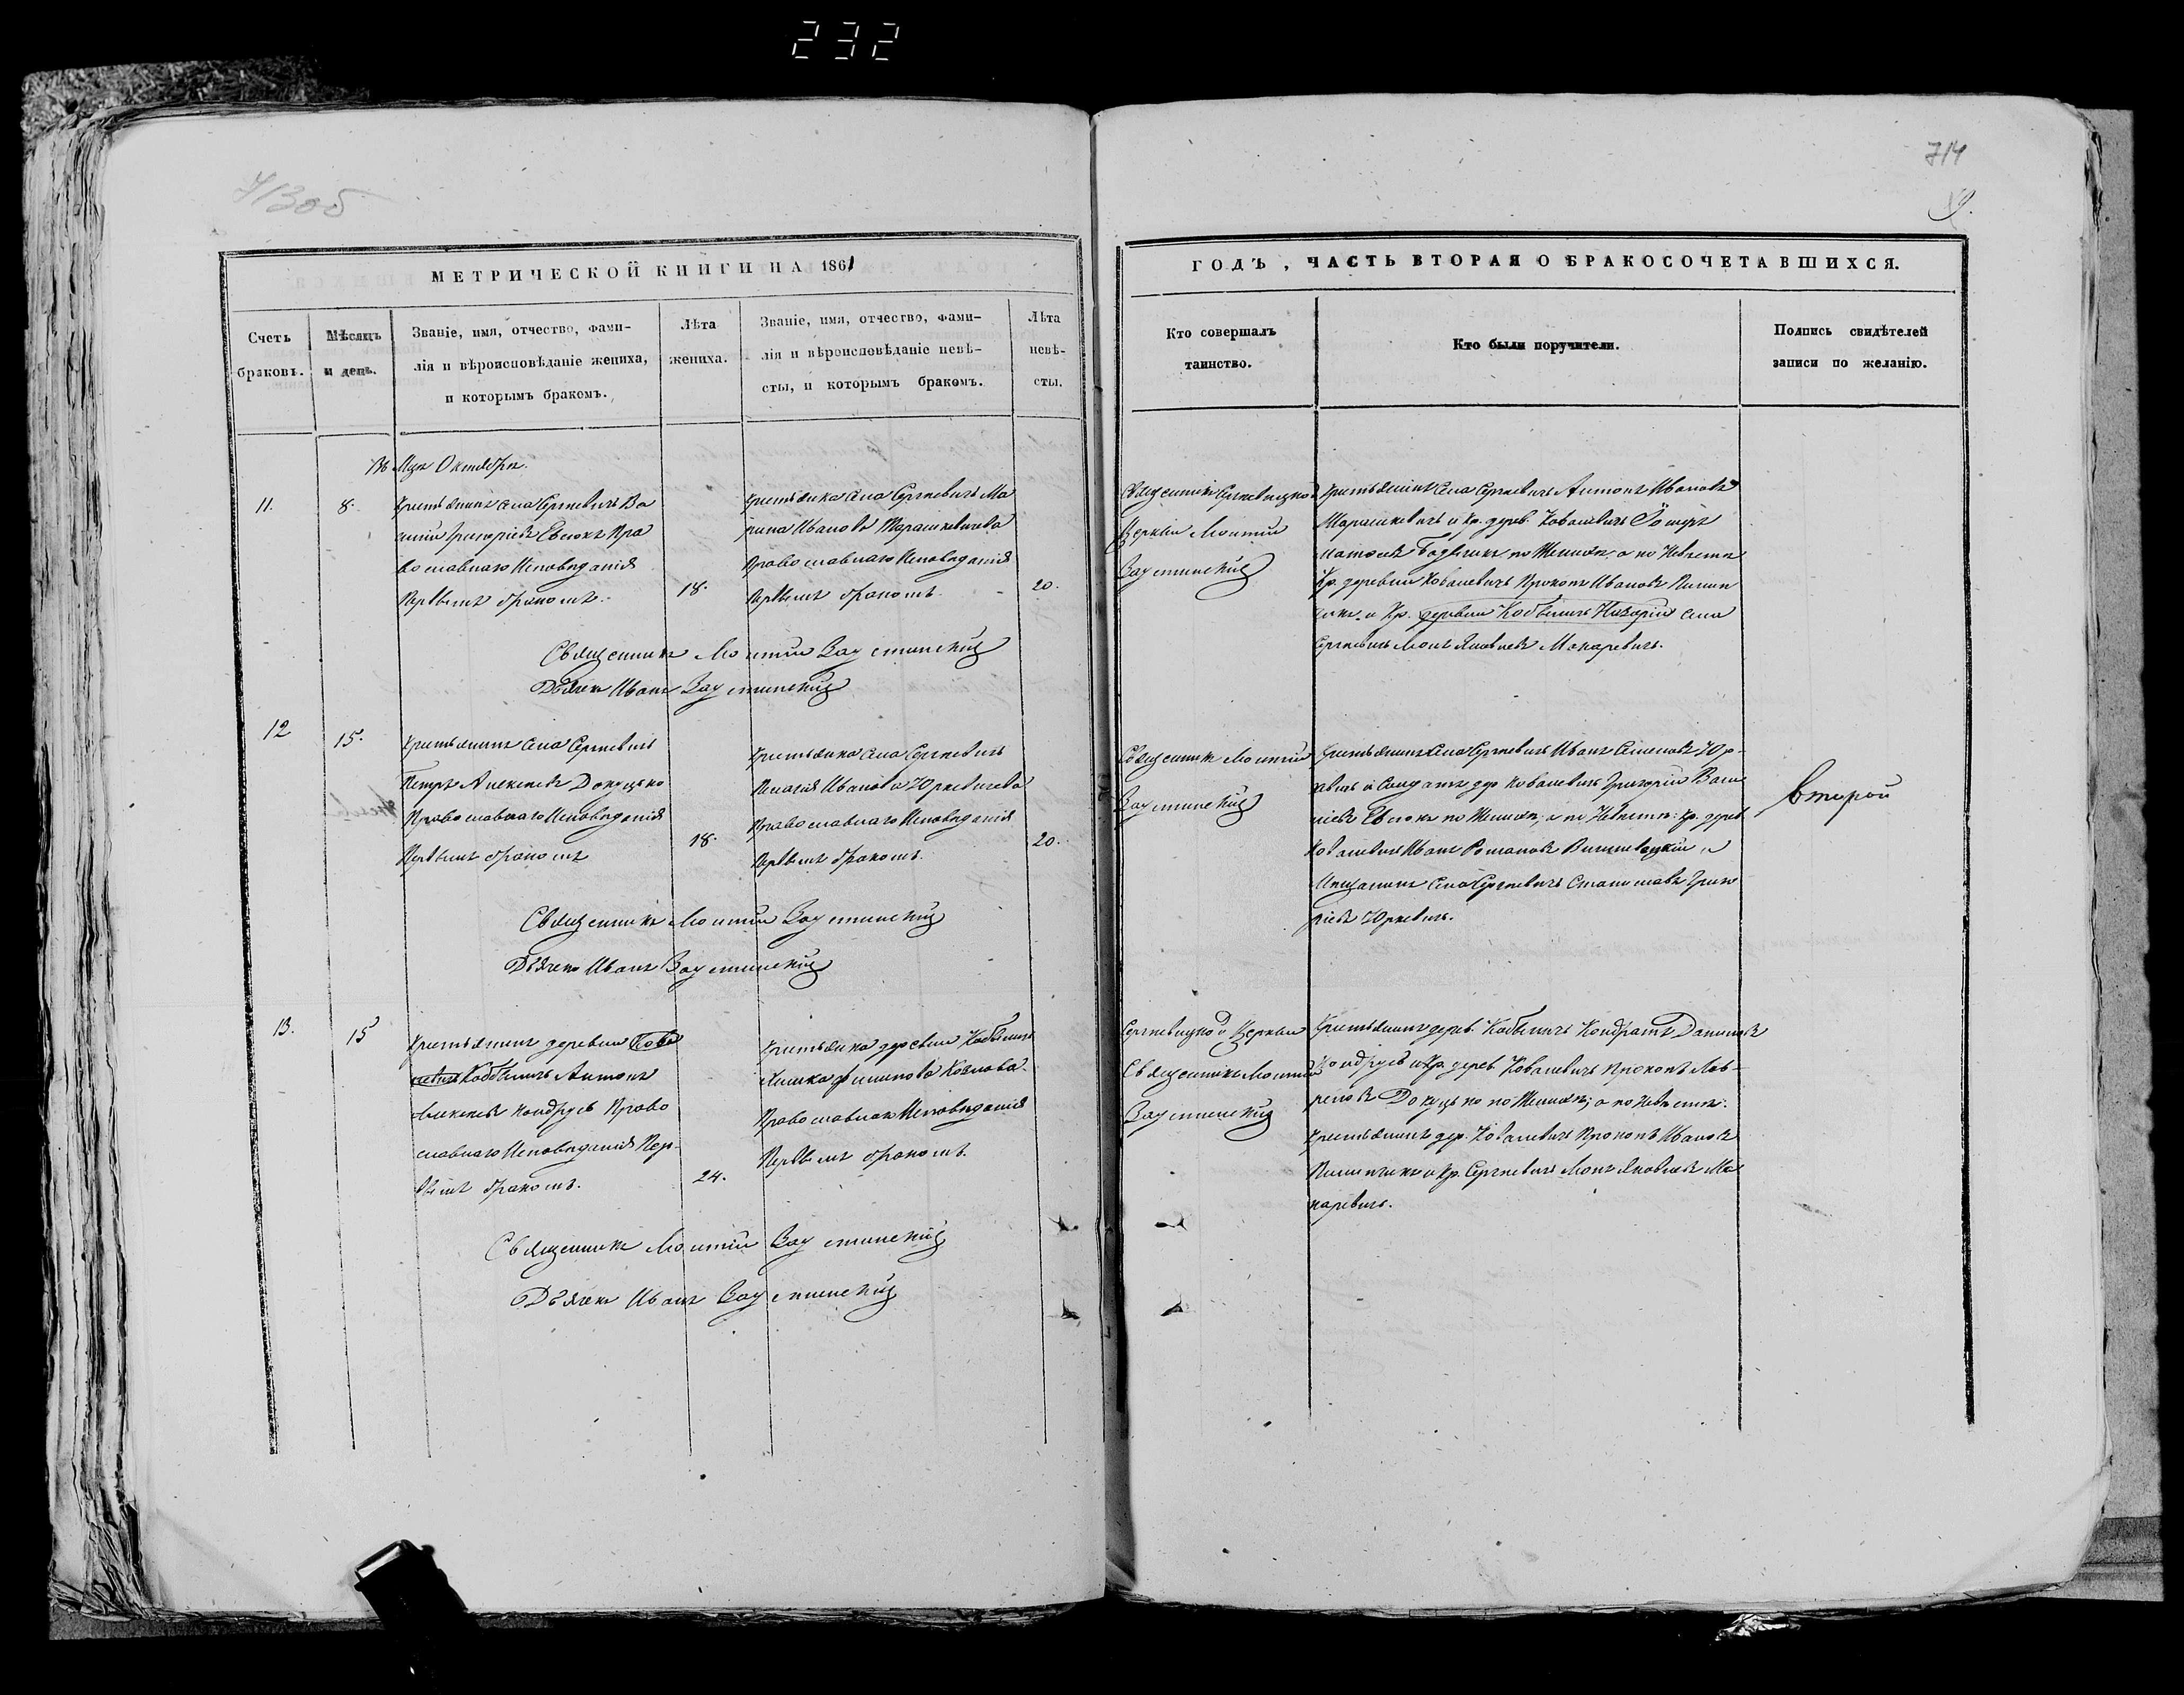 232
713об
714
9.
МЕТРИЧЕСКОЙ КНИГИ НА 1861
ГОДЪ, ЧАСТЬ ВТОРАЯ О БРАКОСОЧЕТАВШИХСЯ.
Счетъ
браковъ.
Мѣсяцъ
и день.
Званіе, имя, отчество, фами-
лія и вѣроисповѣданіе жениха,
и которымъ бракомъ.
Лѣта
жениха.
Званіе, имя, отчество, фами-
лія и вѣроисповѣданіе невѣ-
сты, и которымъ бракомъ.
Лѣта
невѣ-
сты.
Кто совершалъ
таинство.
Кто были поручители.
Подпись свидѣтелей
записи по желанію.
Въ Мцѣ Октябрѣ.
11.
8.
Крестьянинъ села Сергѣевичъ Ва
силій Григоріевъ Евсюкъ Пра
вославнаго Исповѣданія
Первымъ бракомъ.
18.
Крестьянка села Сергѣевичъ Ма
рина Иванова Тарашкевичева
Православнаго Исповѣданія
Первымъ бракомъ.
20.
Священникъ Сергѣевицкой
Церкви
Заусцинскій
Крестьянинъ села Сергѣевичъ Антонъ Ивановъ
Тарашкевичъ и Кр. дерев. Ковалевичъ
по Женихѣ, а по Невѣстѣ
Кр. деревни Ковалевичъ Прокопъ Ивановъ Пилип
чикъ и Кр. деревни Кобыличъ Назарій села
Сергѣевичъ Яковлевъ Макаревичъ.
Священникъ Заусцинскій
Дьячекъ Иванъ Заусцинскій
12
15.
Крестьянинъ села Сергѣевичъ
Петръ Алексѣевъ Докуцько
Православнаго Исповѣданія
Первымъ бракомъ
18.
Крестьянка села Сергѣевичъ
Пелагія Иванова Юркевичева
Православнаго Исповѣданія
Первымъ бракомъ.
20.
Священникъ
Заусцинскій
Крестьянинъ села Сергѣевичъ Иванъ Семеновъ Юр-
кевичъ и Солдатъ дер Ковалевичъ Григорій Васи
ліевъ Евсюкъ по Женихѣ, а по Невѣстѣ: Кр. дерев.
Ковалевичъ Иванъ Романовъ Вишневецкій и
Мѣщанинъ села Сергѣевичъ Станиславъ Григо
ріевъ Юркевичъ.
второй
Священникъ Заусцинскій
Дьячекъ Иванъ Заусцинскій
13.
15
Крестьянинъ деревни Кова
левичъ Кобыличъ Антонъ
Алексѣевъ Кондрусь Право
славнаго Исповѣданія Пер-
вымъ бракомъ.
24.
Крестьянка деревни Кобыличъ
Филипова Козлова
Православнаго Исповѣданія
Первымъ бракомъ.
Сергѣевицкой Церкви
Священникъ
Заусцинскій
Крестьянинъ дерев. Кобыличъ Кондратъ Даниловъ
Кондрусь и Кр. дерев. Ковалевичъ Прокопъ Лав-
реновъ Докуцько по Женихѣ; а по Невѣстѣ:
Крестьянинъ дер. Ковалевичъ Прокопъ Ивановъ
Пилипчикъ и Кр. Сергѣевичъ Яковлевъ Ма
каревичъ.
Священникъ Заусцинскій
Дьячекъ Иванъ Заусцинскій